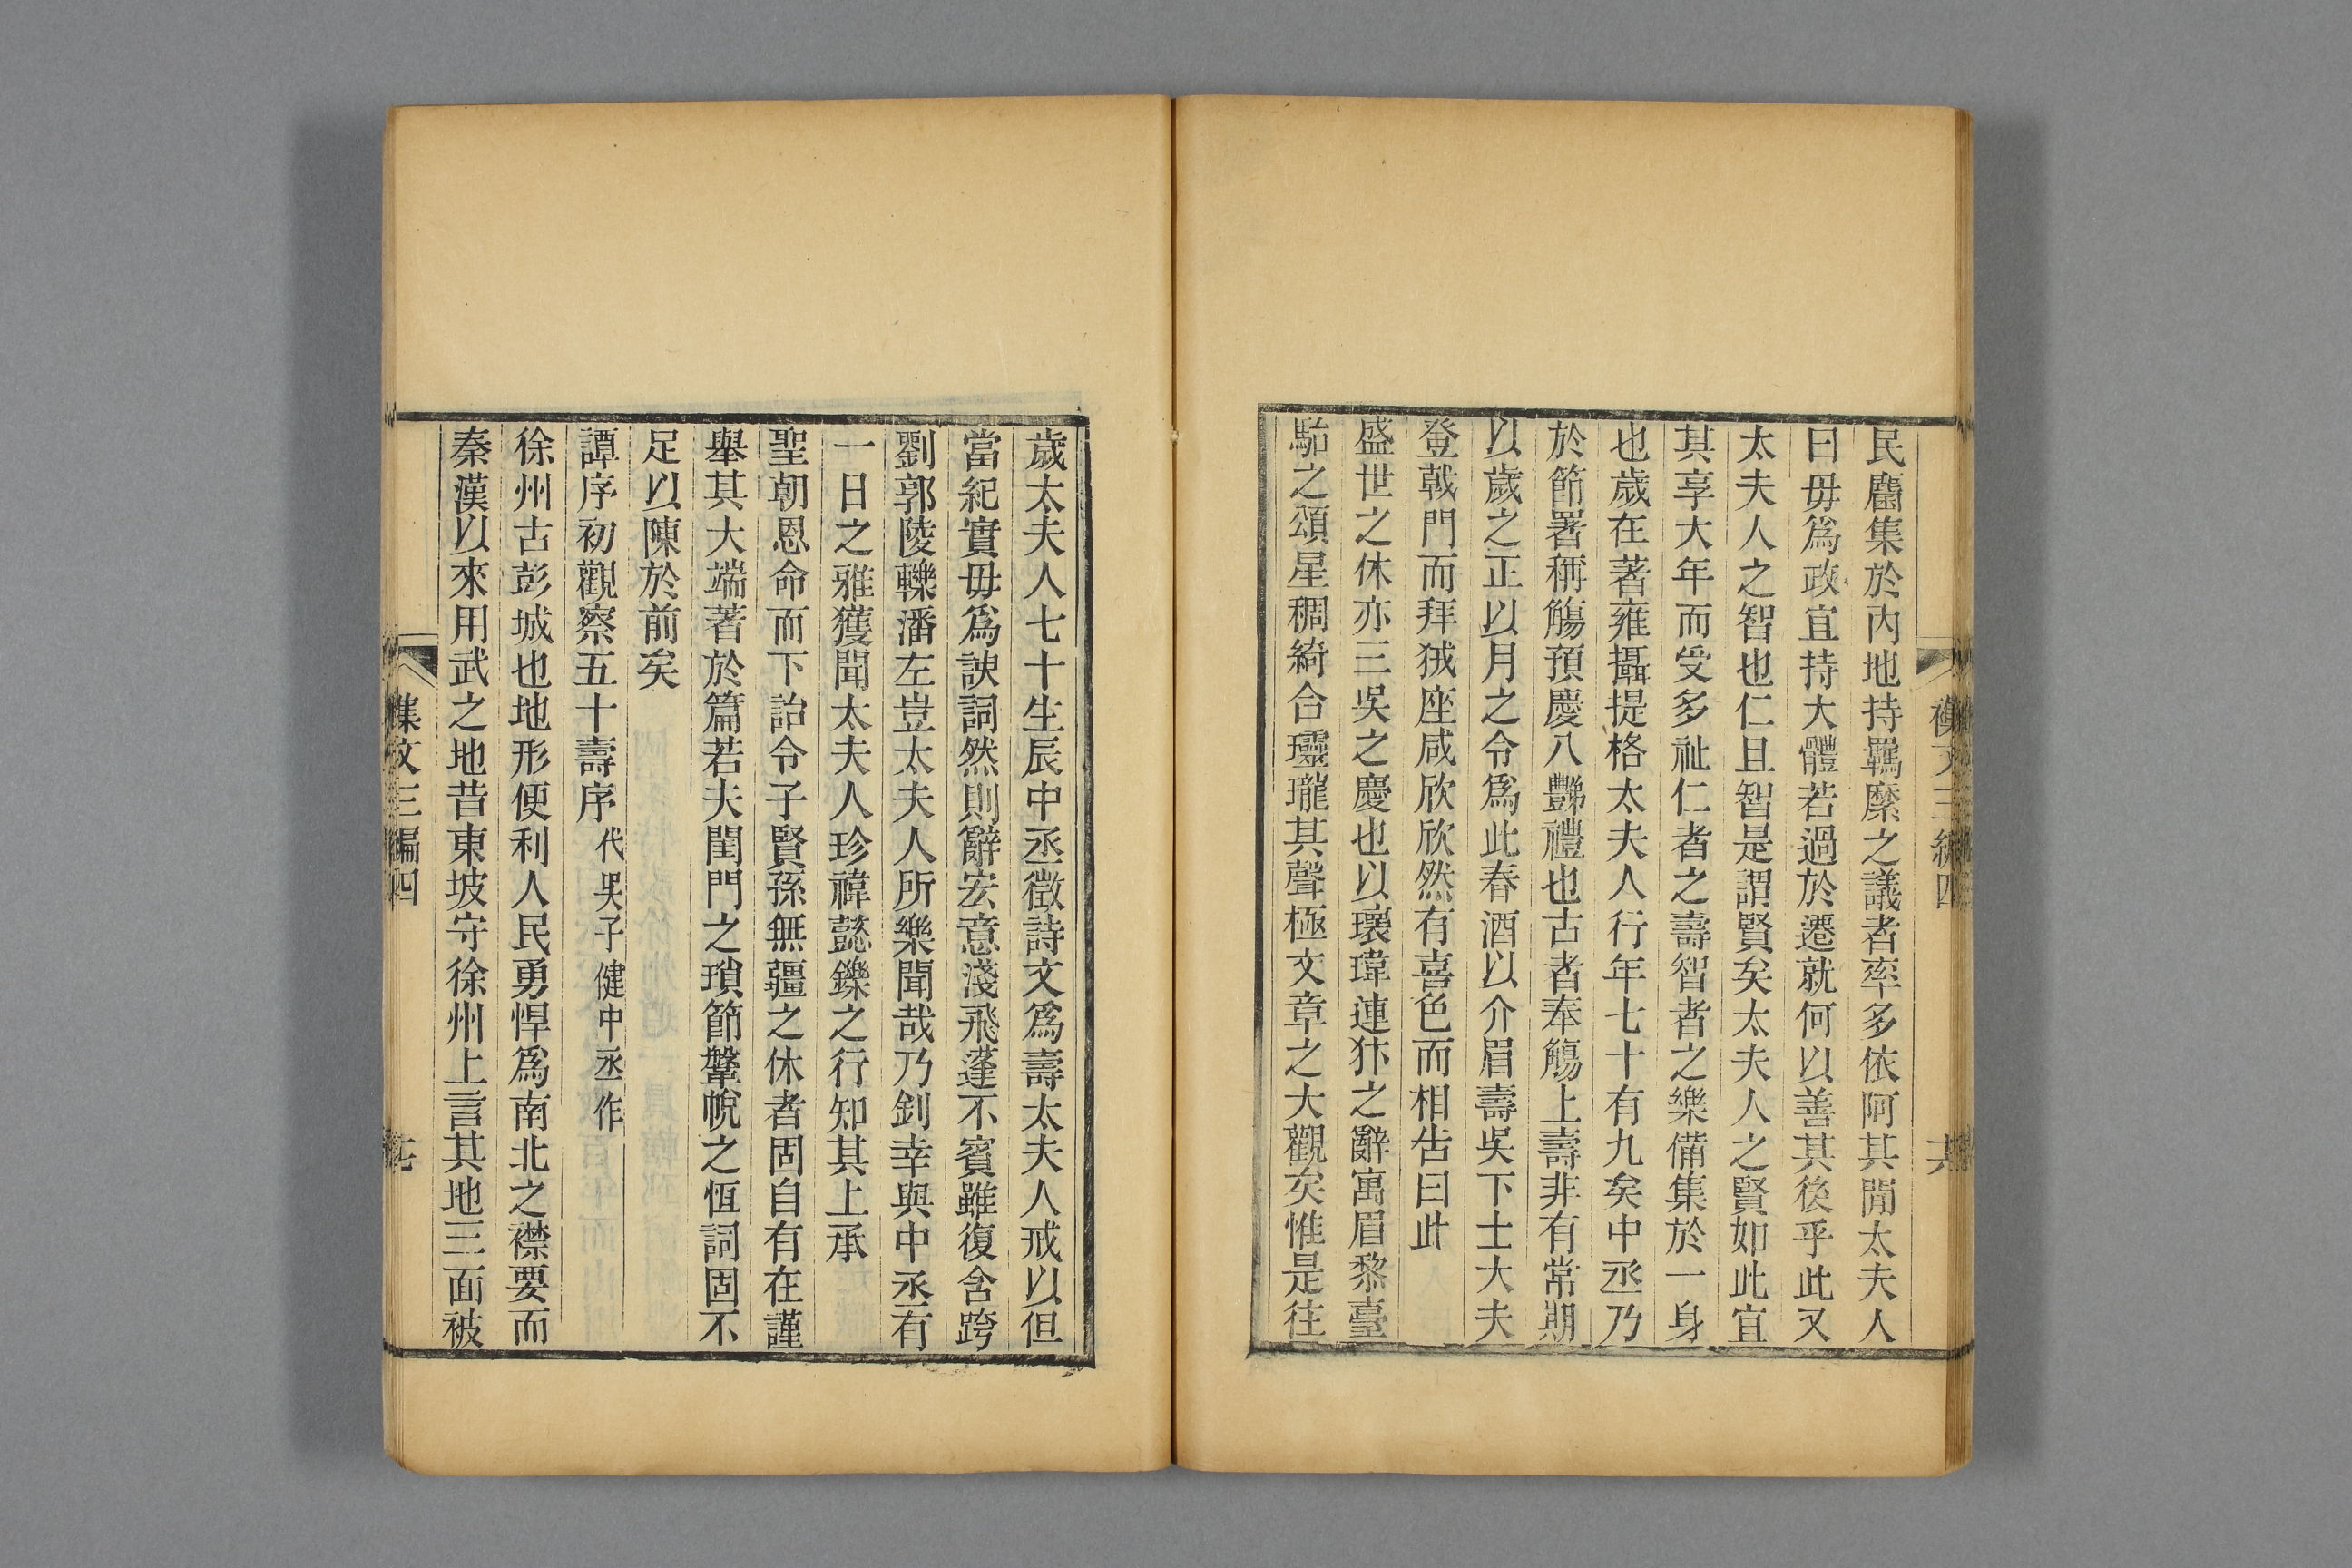 民麕集於內地持羈縻之議者率多依阿其閒太夫人
曰毋爲政宜持大體若過於遷就何以善其後乎此又
太夫人之智也仁且智是謂賢矣太夫人之賢如此宜
其享大年而受多祉仁者之壽智者之樂備集於一身
也歲在著雍攝提格太夫人行年七十有九矣中丞乃
於節署稱觴預慶八豑禮也古者奉觴上壽非有常期
以歲之正以月之令爲此春酒以介眉壽吳下士大夫
登戟門而拜狨座咸欣欣然有喜色而相告曰此
盛世之休亦三吳之慶也以瓌瑋連犿之辭寓眉黎臺
駘之頌星稠綺合瓃瓏其聲極文章之大觀矣惟是往
歲太夫人七十生辰中丞徵詩文爲壽太夫人戒以但
當紀實毋爲諛詞然則辭宏意淺飛蓬不賓雖復含跨
劉郭陵轢潘左豈太夫人所樂聞哉乃釗幸與中丞有
一日之雅獲聞太夫人珍禕懿鑠之行知其上承
聖朝恩命而下詒令子賢孫無疆之休者固自有在謹
舉其大端著於篇若夫閨門之瑣節鞶帨之恆詞固不
足以陳於前矣
譚序初觀察五十壽序 代吳子健中丞作
徐州古彭城也地形便利人民勇悍爲南北之襟要而
秦漢以來用武之地昔東坡守徐州上言其地三面被
襍文三編四